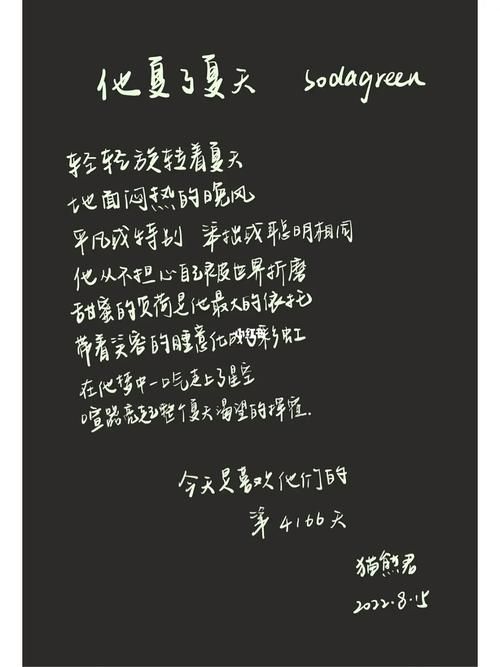 他夏了夏天 sodagreen
轻轻旋转着夏天
地面闷热的晚风
平凡或特别 笨拙或聪明相同
他从不担心自己被世界折磨
甜蜜的负荷是他最大的依托
带着笑容的睡意化成彩虹
在他梦中一吃走上了星空
喧嚣亮起整个夏天渴望的挥霍.
今天是喜欢他们的
第4166天
猫熊君
2022.8.15